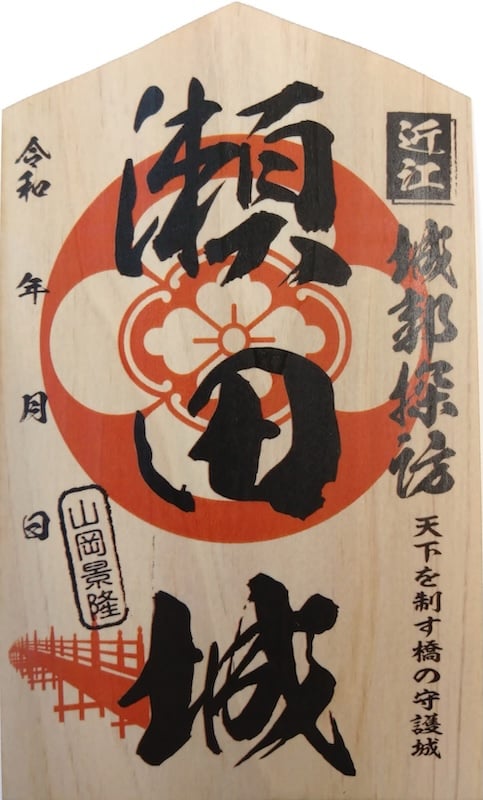 近江
城郭探訪
天下を制す橋の守護城
瀬田城
令和 年 月 日
山岡景隆